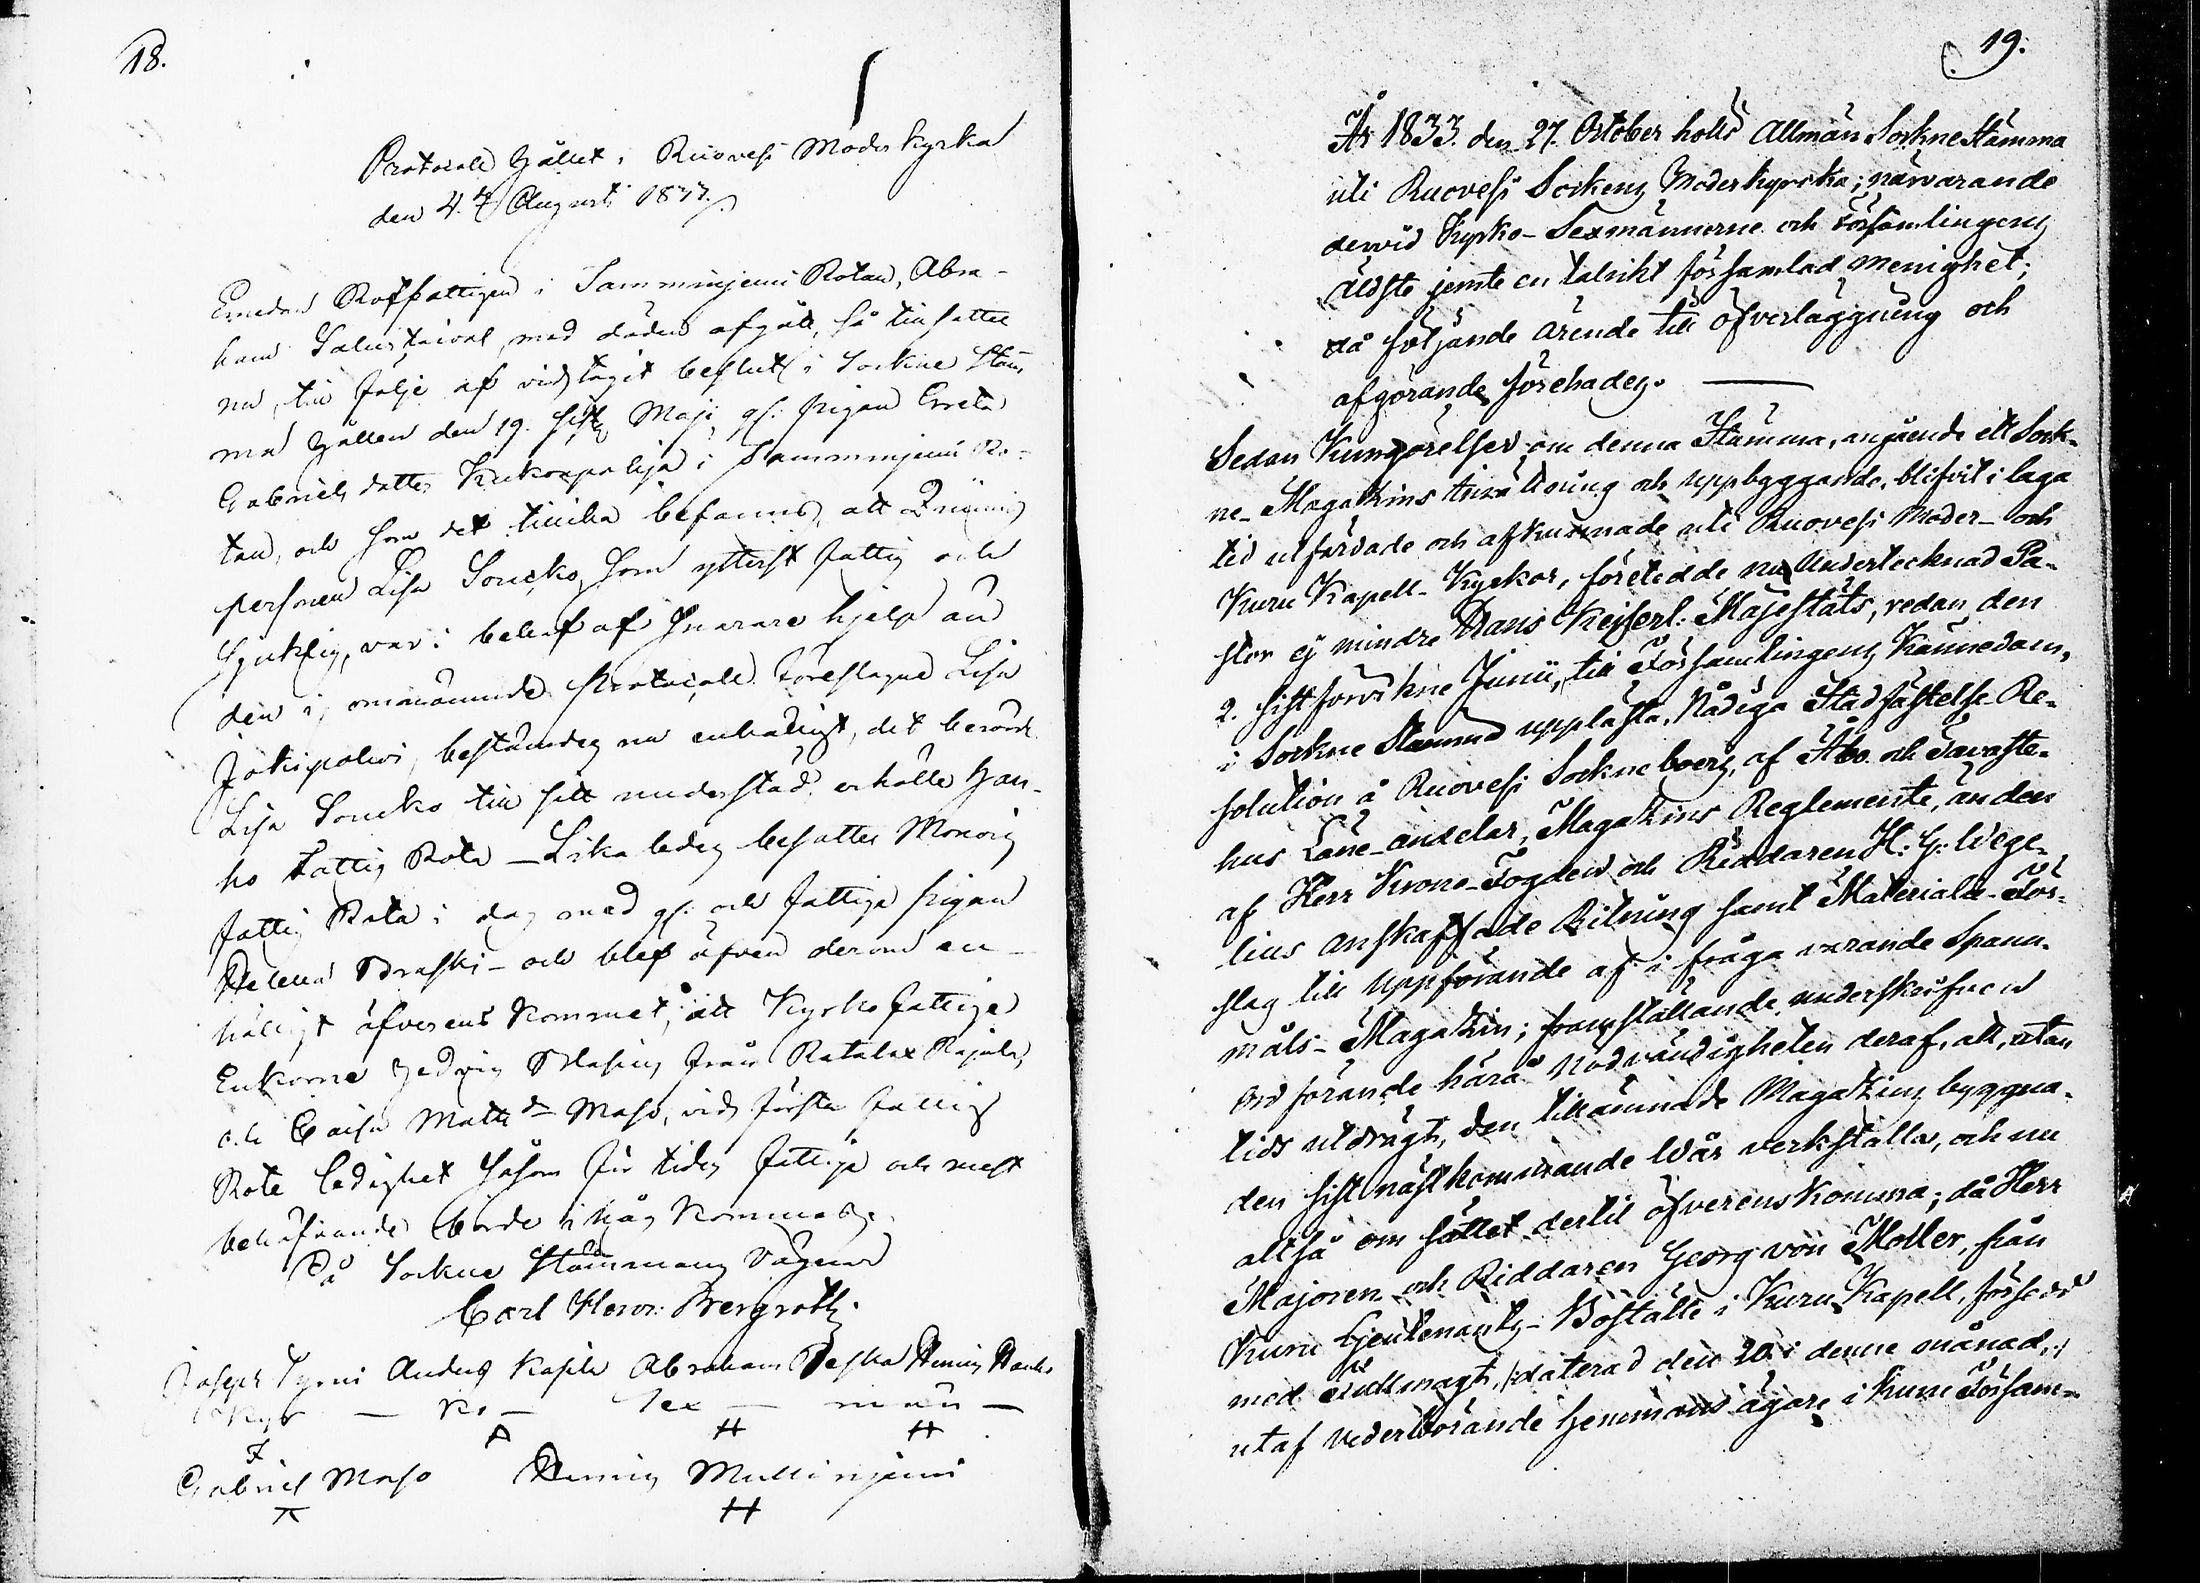 18.
Protocoll hållet i Ruovesi Moderkyrka
den 4. Augusti 1833.
Emedan Rotfattigen i Jamminjemi Rotan, Abra-
ham med döden afgått, så tillsattes
nu, till följe af vidtagit beslut i Sockne Stäm
ma hållen den 19. sistl. Maji, pigan Greta
Gabriels dotter i Jamminjemi Ro-
tan, och som det tillika befanns, att
personen Lisa Soucko, som ytterst fattig och
sjuklig, var i behof af snarare hjelp än
den i omnämnde Protocoll föreslagne Lisa
bestämdes nu enhälligt, att berörde
Lisa Soucko till sitt understöd erhålla Han-
ho Fattig Rota — Lika ledes besattes Monois
fattig Rota i dag med och fattiga pigan
Helena — och blef äfven derom en-
hälligt öfverens kommet, att Kyrkofattige
Enkorne Hedvig från
och Caisa Matts dr Maso, vid första fattig
Rote ledighet såsom för tiden fattige och mest
behöfvande borde i håg kommas.
På Sockne Stämmans vägnar
Carl Henr: Bergroth.
Joseph Tyrni Anders Kapila Abraham Peska Henric
Kyr — ko — Sex — män —
Gabriel Maso Henric Mullinjemi
19.
År 1833. den 27. October holls Allmän Sockne Stämma
uti Ruovesi Sockens Moderkyrka; närvarande
dervid Kyrko-Sexmännerne och Församlingens
äldste jemte en talrikt församlad menighet;
då följande ärende till öfverläggning och
afgörande förehades. —
Sedan Kungörelser om denna Stämma, angående ett Sock-
ne-Magatzins inrättning och uppbyggande, blifvit i laga
tid utfärdade och afkunnade uti Ruovesi Moder- och
Kuru Kapell-Kyrkor, företedde nu Undertecknad Pa-
stor ej mindre Hans Keiserl: Majestäts, redan den
2. sistförvikne Junii, till Församlingens Kännedom,
i Sockne Stämma upplästa, Nådiga Stadfästelse Re-
solution å Ruovesi Sockneboers, af Åbo och Tavaste-
hus Läne-andelar, Magatzins Reglemente, än den
af Herr Krono-Fogden och Riddaren H. G. Wege-
lius anskaffade Ritning samt Materiale-För-
slag till uppförande af i fråga varande Spann-
måls-Magatzin; framställande underskrifven
Ordförande härå nödvändigheten deraf, att, utan
tids utdrägt, den tillämnade Magatzins byggna-
den sistnästkommande Wår verkställa, och nu
alltså om sättet dertill öfverenskomma; då Herr
Majoren och Riddaren Georg von Moller, från
Kuru Ljeutenants-Boställe i Kuru Kapell, försedd
med Fullmagt, daterad den 20. i denne månad,
utaf vederbörande hemmans ägare i Kuru Försam-